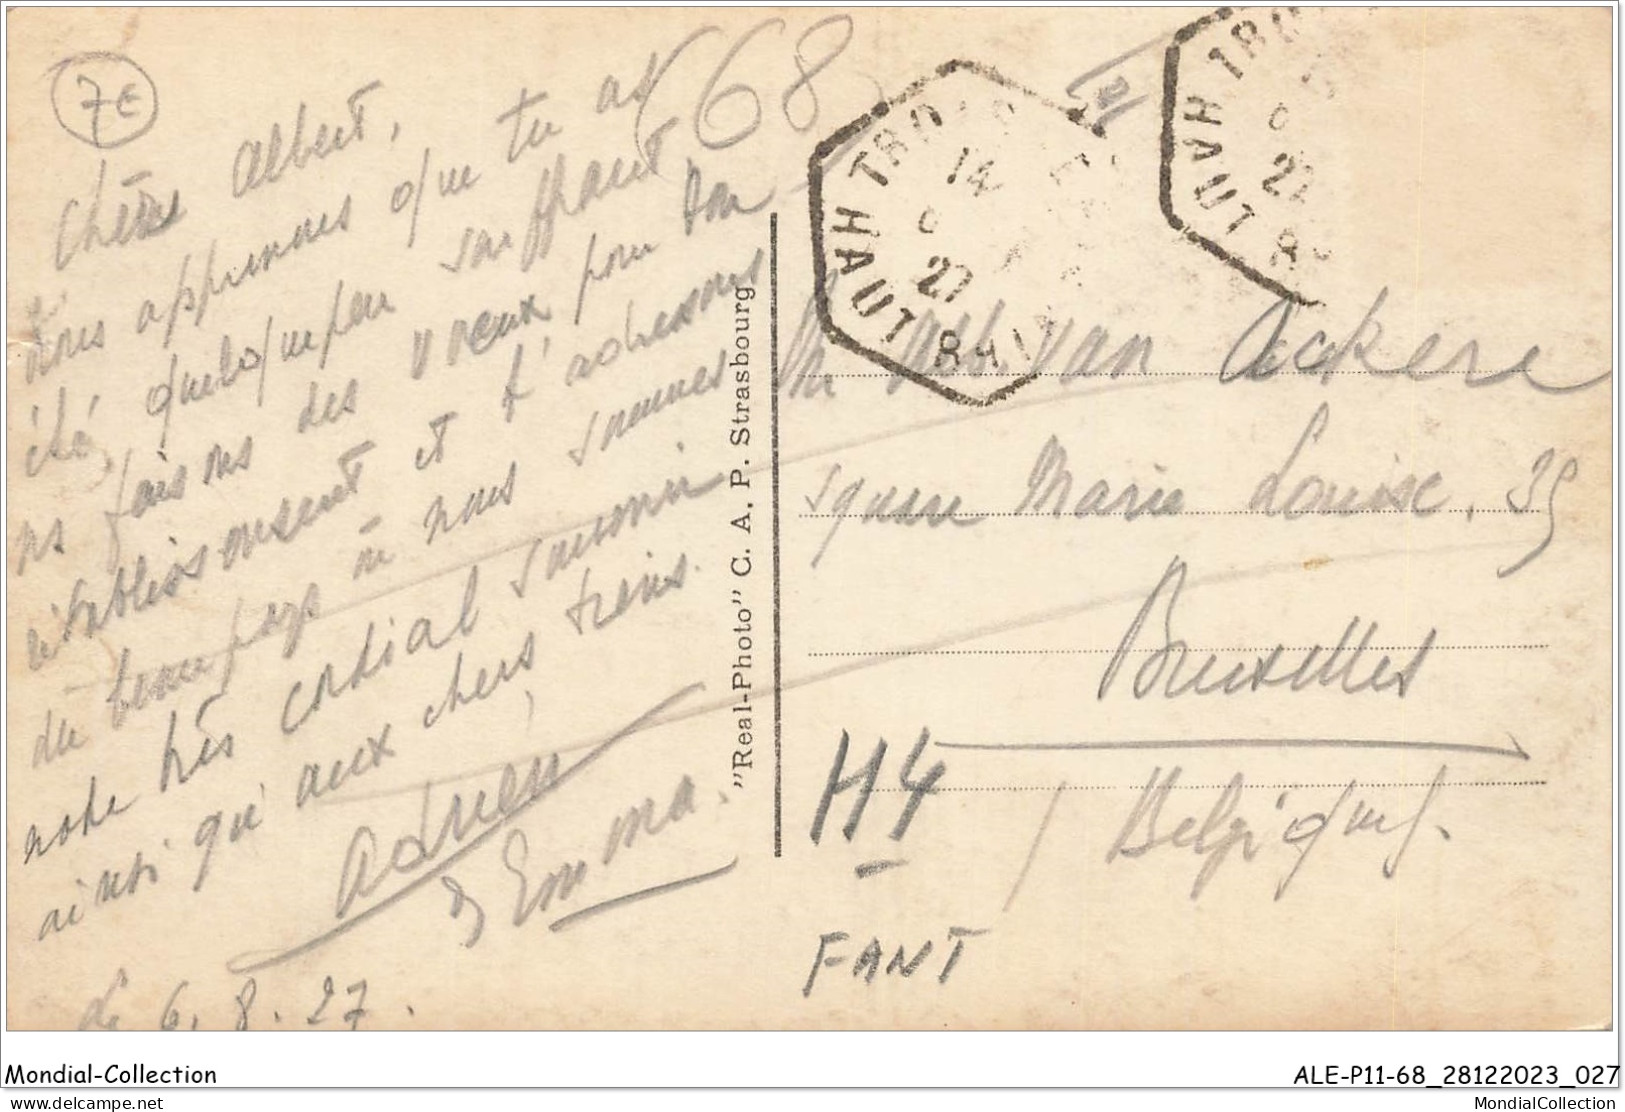 7€
68
Chère Albert,
Nous apprennes que tu as
été, quelquepeu souffrant
ns faisons des voeux pour ton
rétablissement et t'adressons
du beau pays où nous sommes
notre très cordial souvenir
ainsi qu'aux chers tiens.
Adrien
& Emma.
Le 6.8.27.
"Real-Photo" C. A. P. Strasbourg
TROIS
HAUT RHIN
14
27
HAUT
22
Mr Alb. van Ackere
Square Marie Louise. 35
Bruxelles
Belgique.
H4
FANT
Mondial-Collection
ALE-P11-68_28122023_027
delcampe.net
MondialCollection